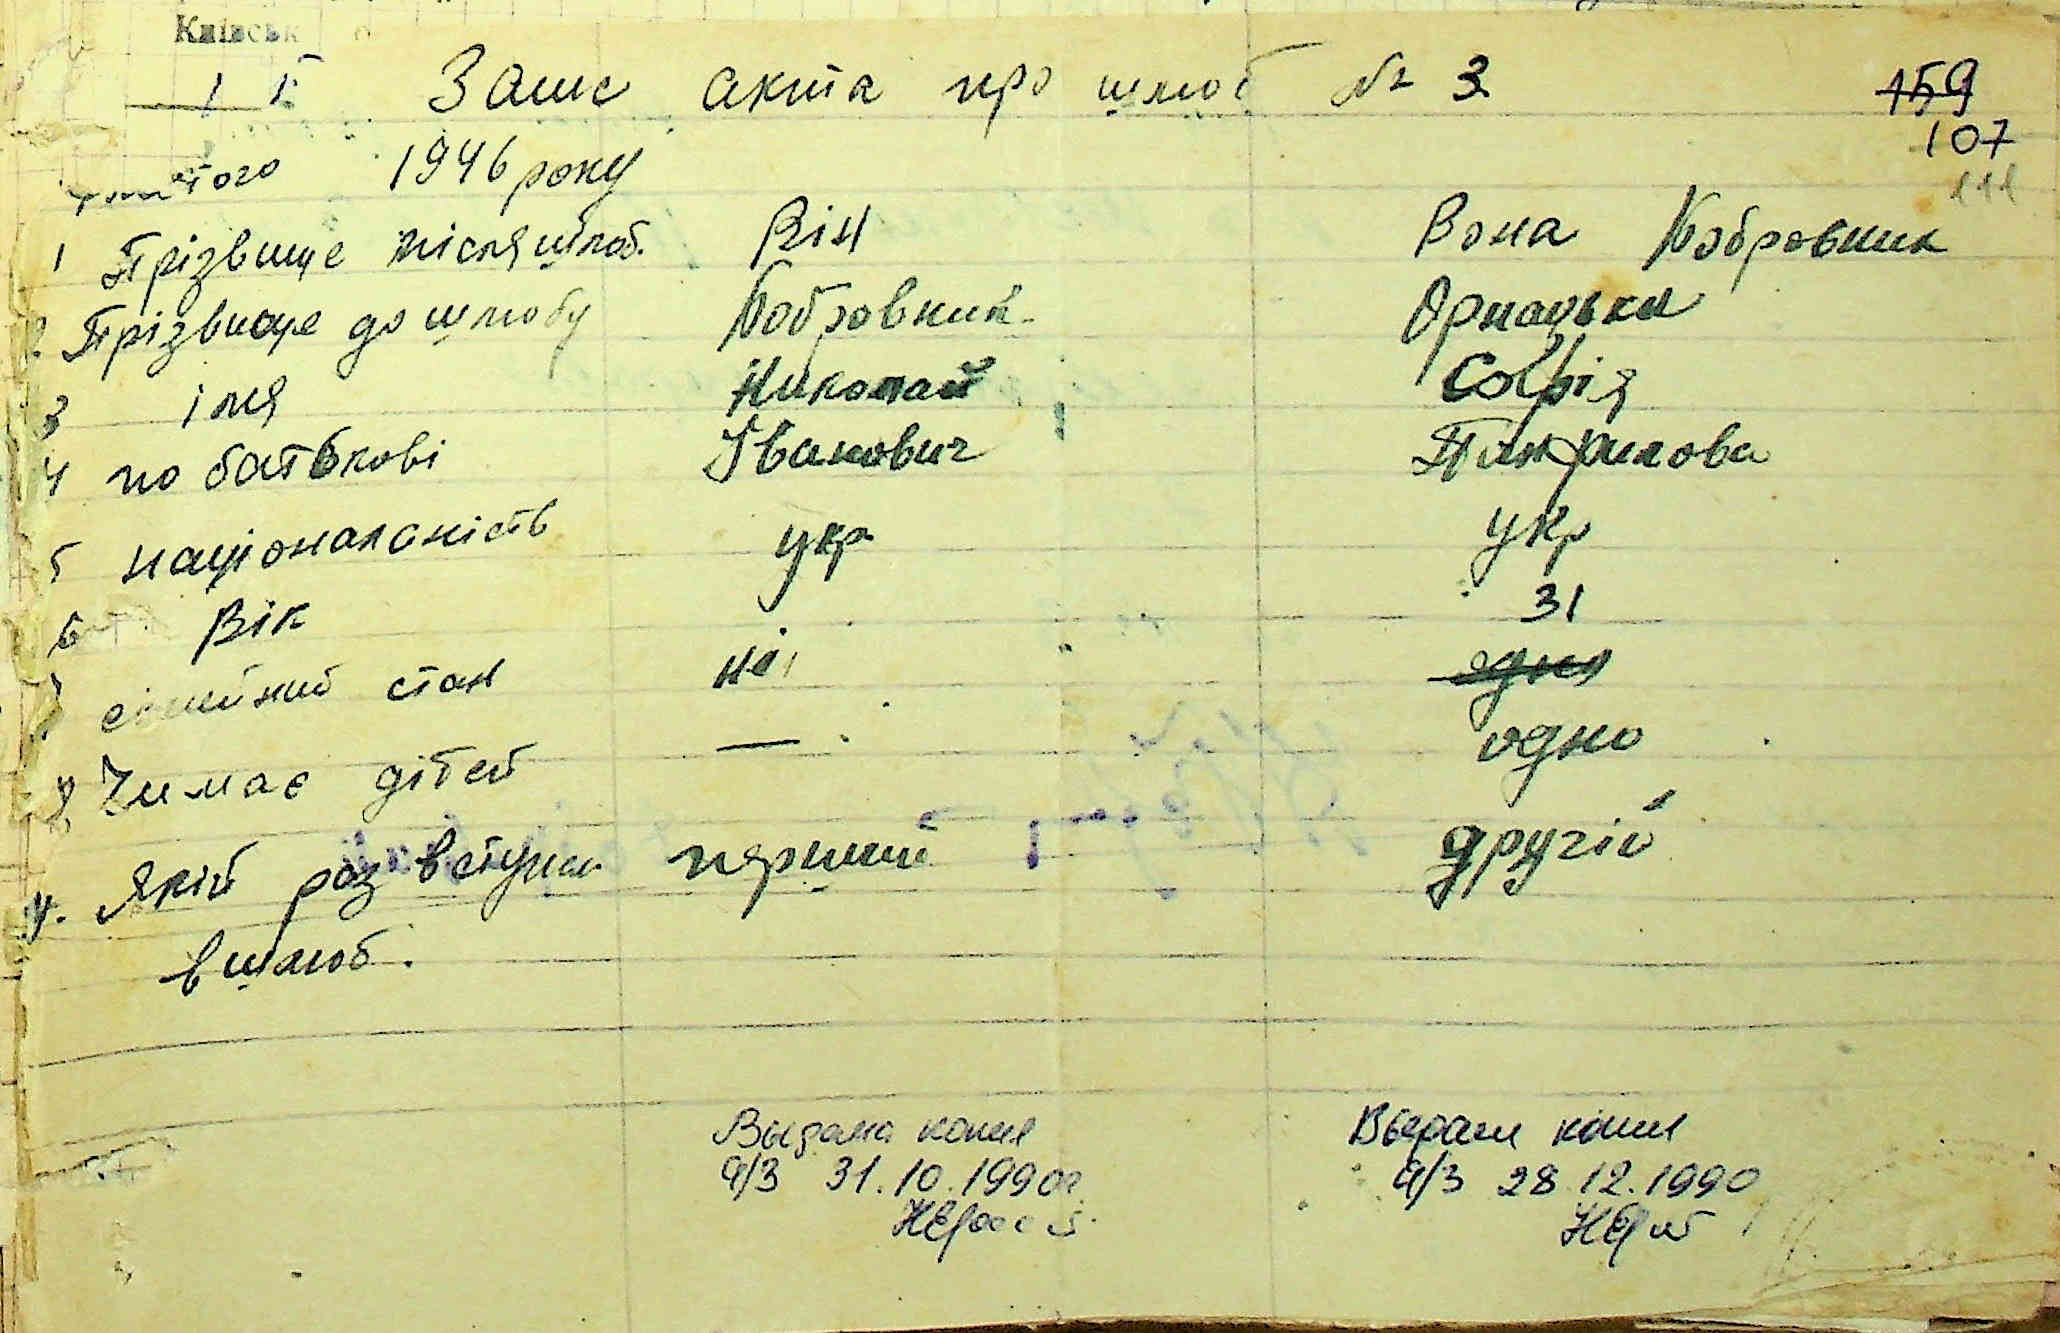 Київськ
Запис акта про шлюб № 3
159
107
111
лютого 1946 року
1 Прізвище після шлюб. Він Вона Бобровник
2. Прізвище до шлюбу Бобровник Орнацька
3 імя Николай Софія
4 по батькові Іванович Панфилова
5 національність укр укр
6 Вік 31
сімейний стан ні
8 Чи має дітей — одно
Якій раз вступил перший другій
в шлюб.
Выдана копия Выдан копия
а/з 31.10.1990г. а/з 28.12.1990